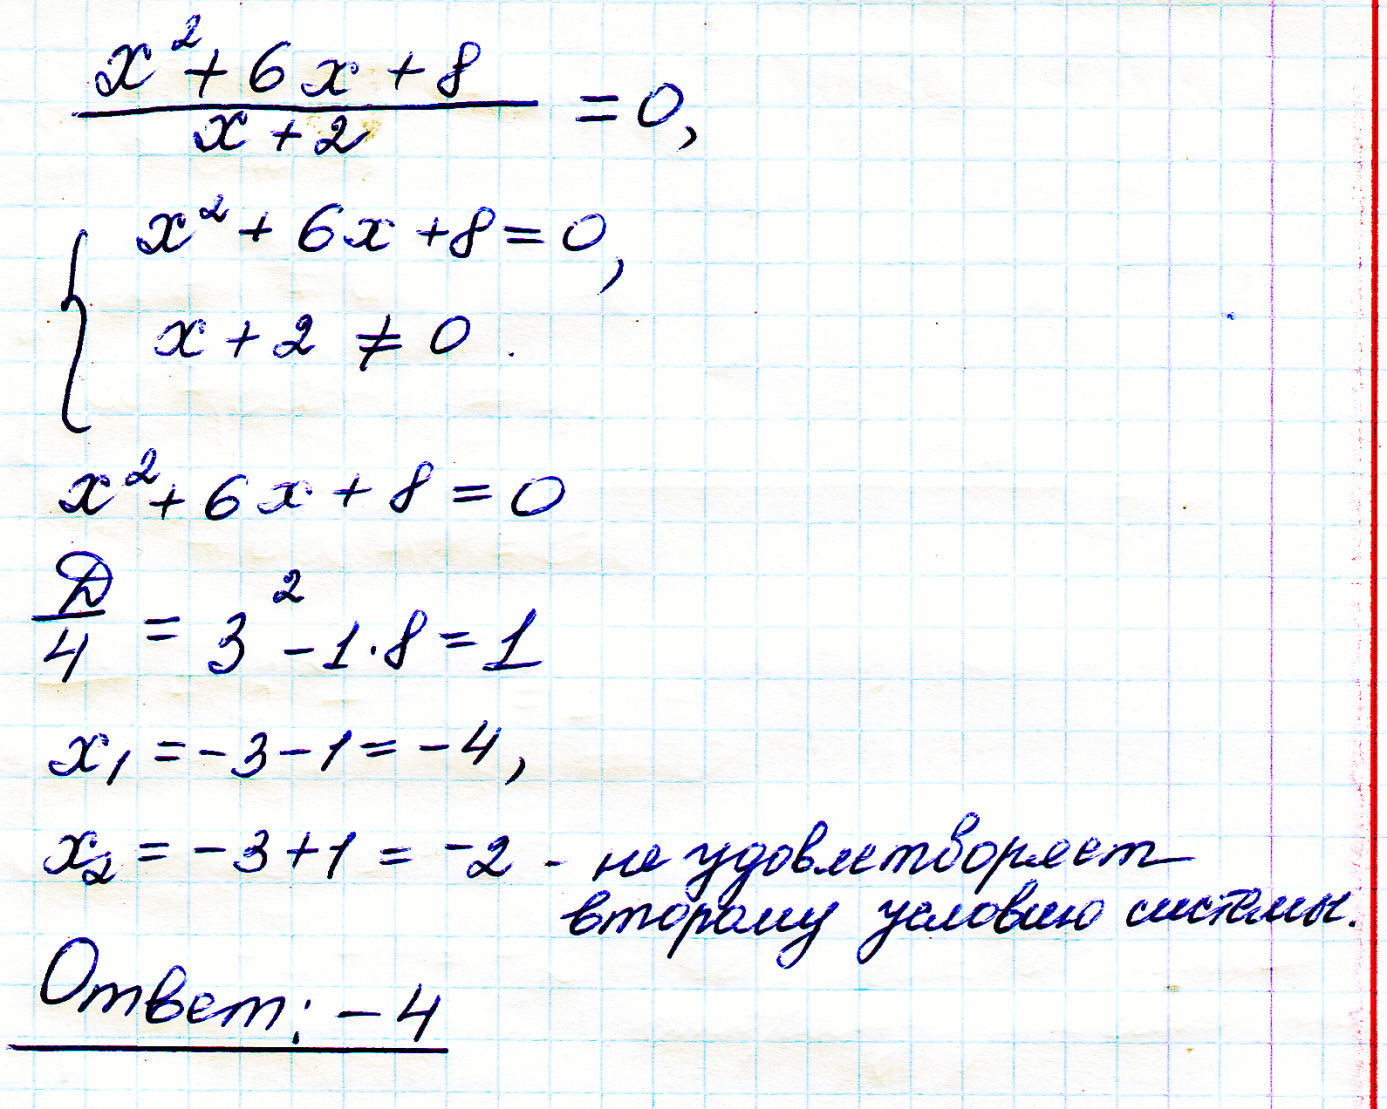 x² + 6x + 8
x + 2
= 0,
x² + 6x + 8 = 0,
x + 2 ≠ 0.
x² + 6x + 8 = 0
D/4 = 3² - 1·8 = 1
x₁ = -3 - 1 = -4,
x₂ = -3 + 1 = -2 - не удовлетворяет
второму условию системы.
Ответ: -4